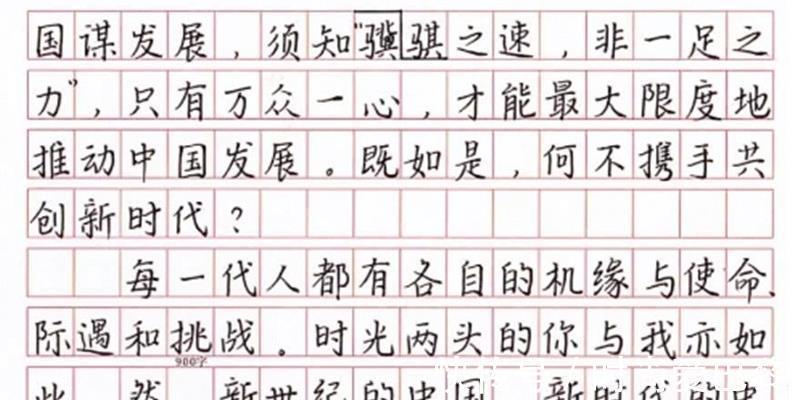 国谋发展，须知"骥骐之速，非一足之
力"，只有万众一心，才能最大限度地
推动中国发展。既如是，何不携手共
创新时代？
每一代人都有各自的机缘与使命、
际遇和挑战。时光两头的你与我亦如
900字
此 然 新世纪的中国 新时代的中